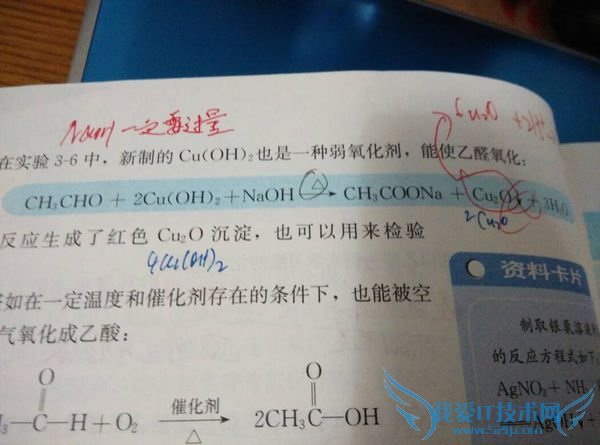 NaOH 一定要过量
Cu₂O
在实验 3-6 中，新制的 Cu(OH)₂也是一种弱氧化剂，能使乙醛氧化：
CH₃CHO + 2Cu(OH)₂+NaOH △→ CH₃COONa + Cu₂O↓ + 3H₂O
2Cu₂O
反应生成了红色 Cu₂O 沉淀，也可以用来检验
4Cu(OH)₂
如在一定温度和催化剂存在的条件下，也能被空
气氧化成乙酸：
资料卡片
制取银氨溶液
的反应方程式如下：
AgNO₃+ NH
O O
—C—H+O₂ 催化剂 △ → 2CH₃C—OH
我爱IT技术网
www.52ij.com